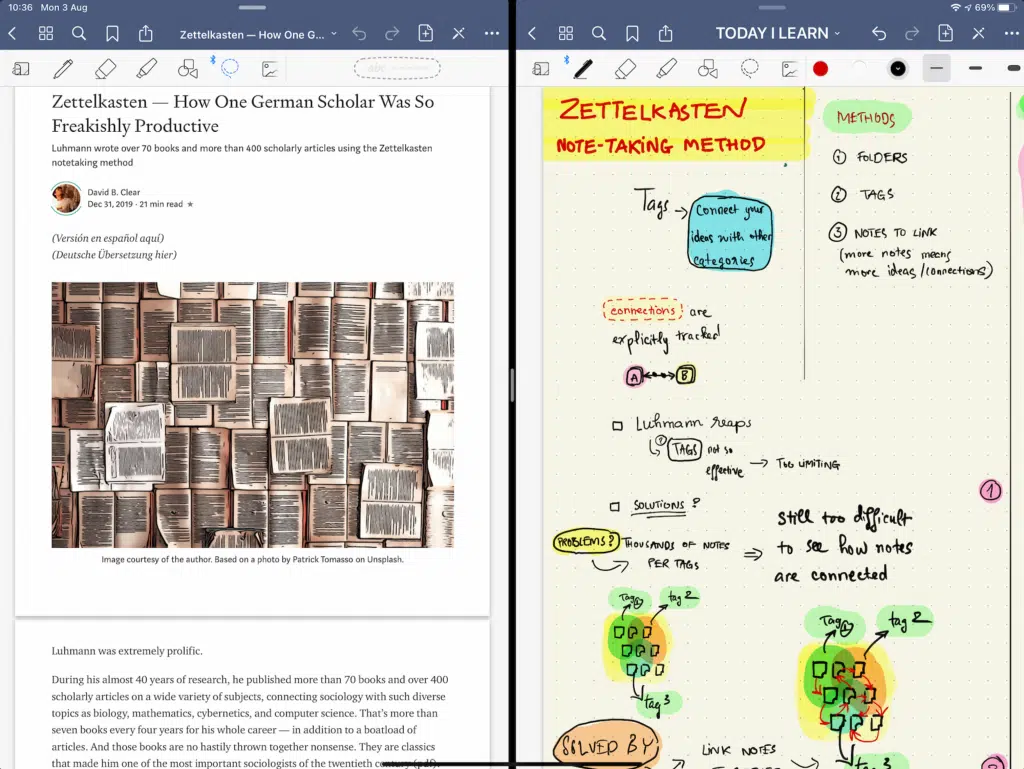 10:36 Mon 3 Aug
69%
Zettelkasten — How One G...
Zettelkasten — How One German Scholar Was So
Freakishly Productive
Luhmann wrote over 70 books and more than 400 scholarly articles using the Zettelkasten
notetaking method
David B. Clear
Dec 31, 2019 · 21 min read
(Versión en español aquí)
(Deutsche Übersetzung hier)
Image courtesy of the author. Based on a photo by Patrick Tomasso on Unsplash.
Luhmann was extremely prolific.
During his almost 40 years of research, he published more than 70 books and over 400
scholarly articles on a wide variety of subjects, connecting sociology with such diverse
topics as biology, mathematics, cybernetics, and computer science. That's more than
seven books every four years for his whole career — in addition to a boatload of
articles. And those books are no hastily thrown together nonsense. They are classics
that made him one of the most important sociologists of the twentieth century (pdf).
TODAY I LEARN
ZETTELKASTEN
NOTE-TAKING METHOD
Tags
Connect your
ideas with other
categories
connections are
explicitly tracked
A B
Luhmann reaps
1 TAGS not so
effective TOO LIMITING
SOLUTIONS?
PROBLEMS? THOUSANDS OF NOTES
PER TAGS
still too difficult
to see how notes
are connected
Tag 1 tag 2
tag 3
Tag 1 tag 2
tag 3
SOLVED BY
LINK NOTES
METHODS
1 FOLDERS
2 TAGS
3 NOTES TO LINK
(more notes means
more ideas/connections)
1
2